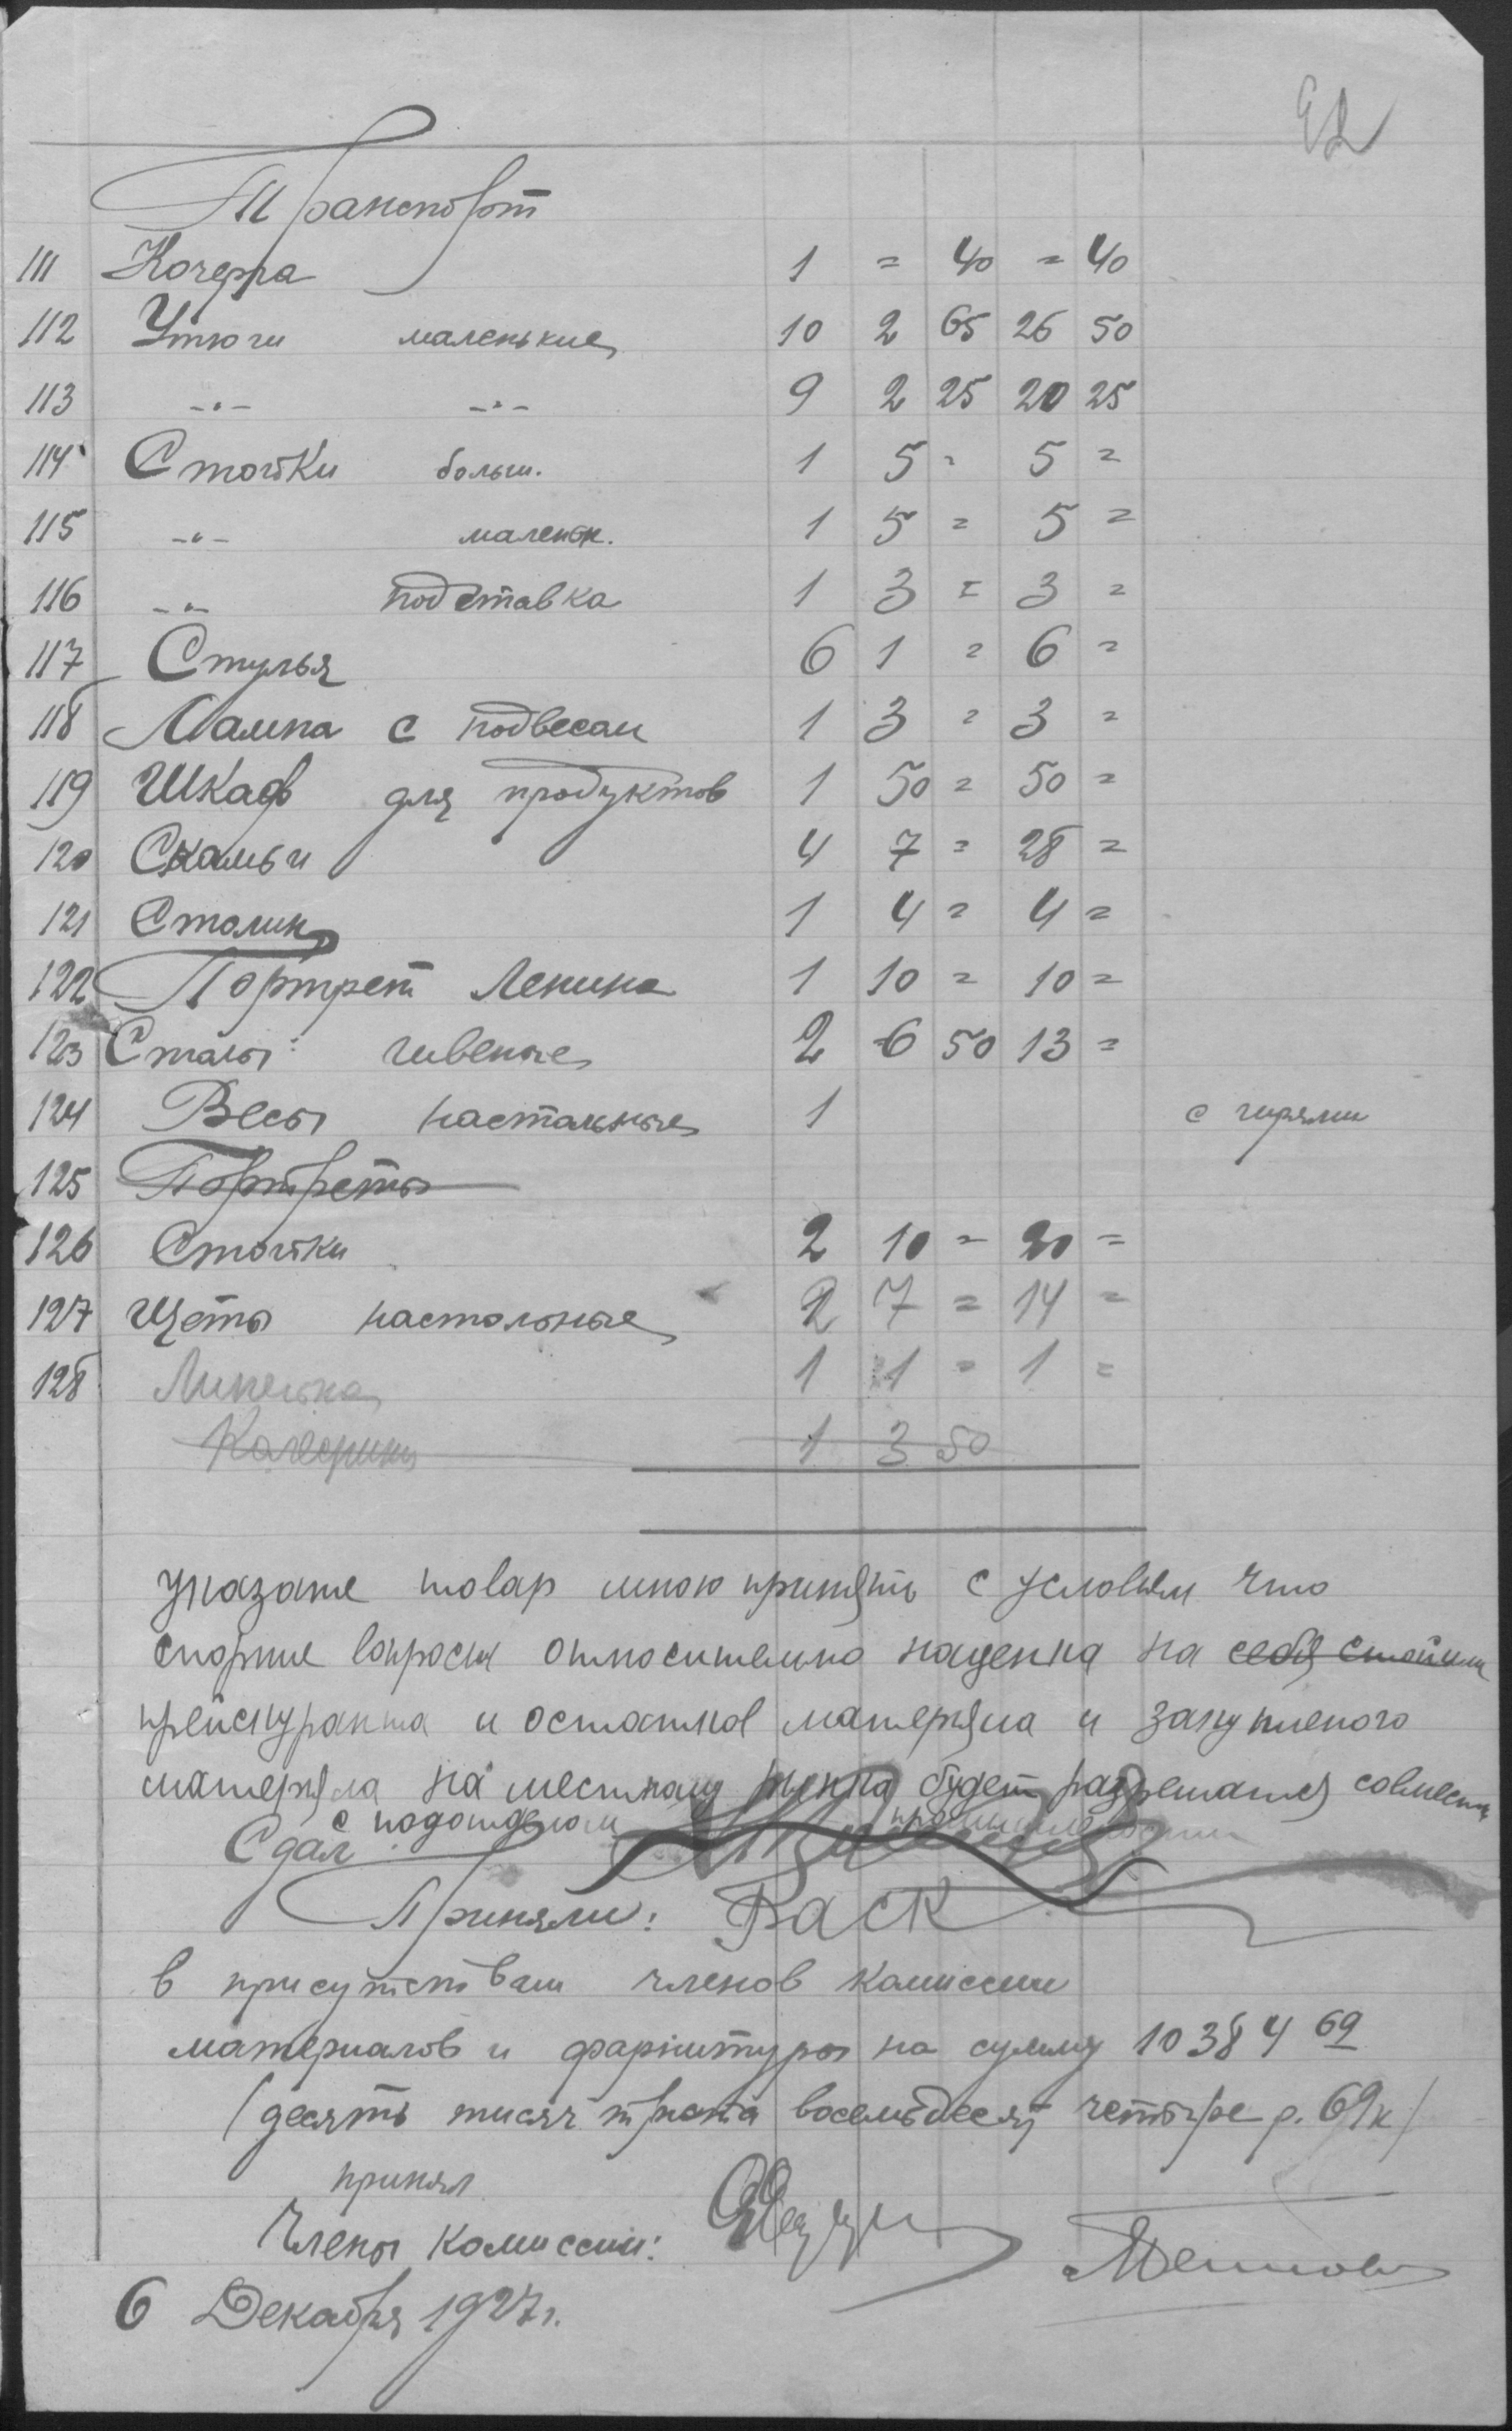 92
Транспорт
111 Кочерга 1 = 40 = 40
112 Утюги маленькие 10 2 65 26 50
113 -"- -"- 9 2 25 20 25
114 Стойки больш. 1 5 = 5 =
115 -"- маленьк. 1 5 = 5 =
116 -"- подставка 1 3 = 3 =
117 Стулья 6 1 = 6 =
118 Лампа с подвесам 1 3 = 3 =
119 Шкаф для продуктов 1 50 = 50 =
120 Скамьи 4 7 = 28 =
121 Столик 1 4 = 4 =
122 Портрет Ленина 1 10 = 10 =
123 Столы 2 6 50 13 =
124 Весы настальные 1 с гирями
125 Портреты
126 Стойки 2 10 = 20 =
127 Щеты настольные 2 7 = 14 =
128 Линейка 1 1 = 1 =
1 3 50
указане товар мною принять с условием что
спорные вопросы относительно наценка на себя стоймы
прейскуранта и остатков матерьяла и закупленого
матерьяла на местном рынка будет разрешатся совмесно
с подотделом промышлености
Сдал
Приняли: Раск
в присутствии членов комиссии
материалов и фарнитуры на сумму 10384 69
(десять тисяч триста восемьдесят четыре р. 69к)
принял
Члены комиссии:
6 Декабря 1927г.